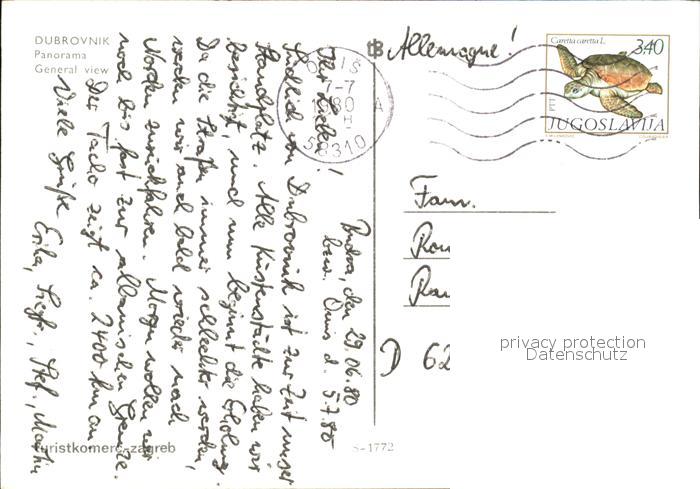 DUBROVNIK
Panorama
General view
Allemagne!
Caretta caretta L.
3.40
PTT
JUGOSLAVIJA
7-7
1980
58310
Budva, den 29.06.80
bzw. Omiš d. 5.7.80
Ihr Lieben!
Südlich von Dubrovnik ist zur Zeit unser
Standplatz. Alle Küstenstädte haben wir
besichtigt, und nun beginnt die Erholung.
Da die Straßen immer schlechter werden,
werden wir auch bald wieder nach
Norden zurückfahren. Morgen wollen wir
noch bis fast zur albanischen Grenze.
Der Tacho zeigt ca. 2400 km an.
Viele Grüße Erika, Siegfr., Stef., Martin
Fam.
D 62
privacy protection
Datenschutz
turistkomerc-zagreb
S-1772